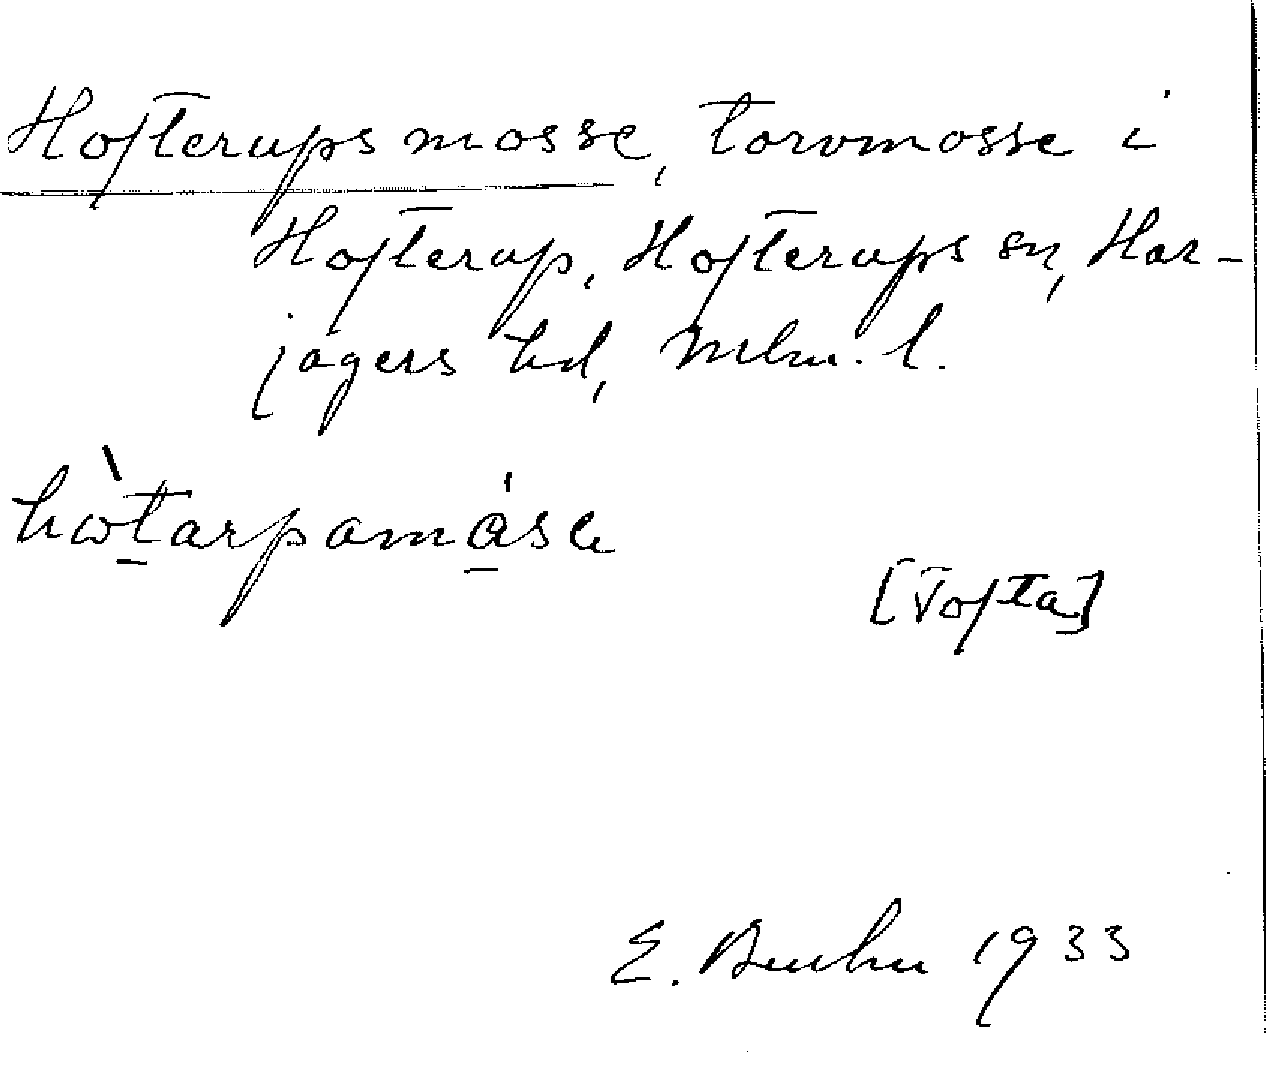 Hofterups mosse, torvmosse i
Hofterup, Hofterups sn, Har-
jagers hd, Mlm. l.
hὼtarpamásɛ
[Tofta]
E. Buhu 1933